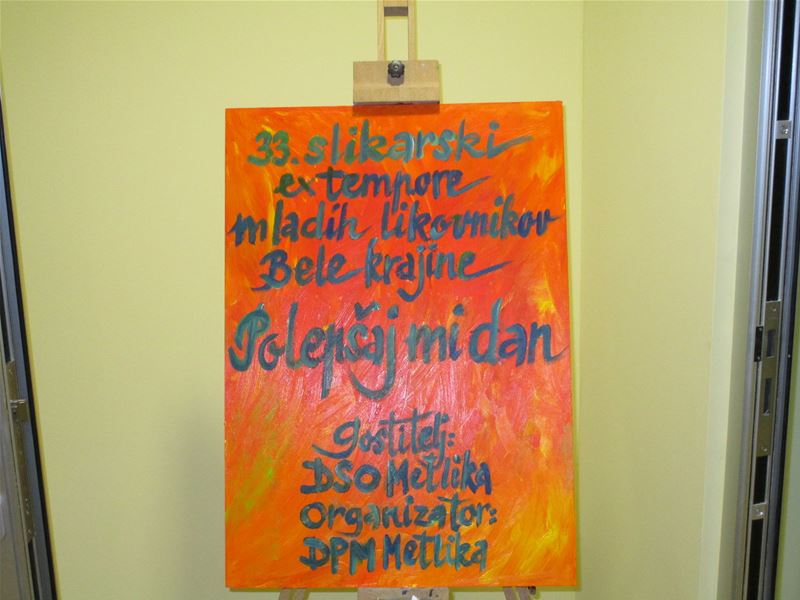 33. slikarski
ex tempore
mladih likovnikov
Bele krajine
Polepšaj mi dan
gostitelj:
DSO Metlika
organizator:
DPM Metlika